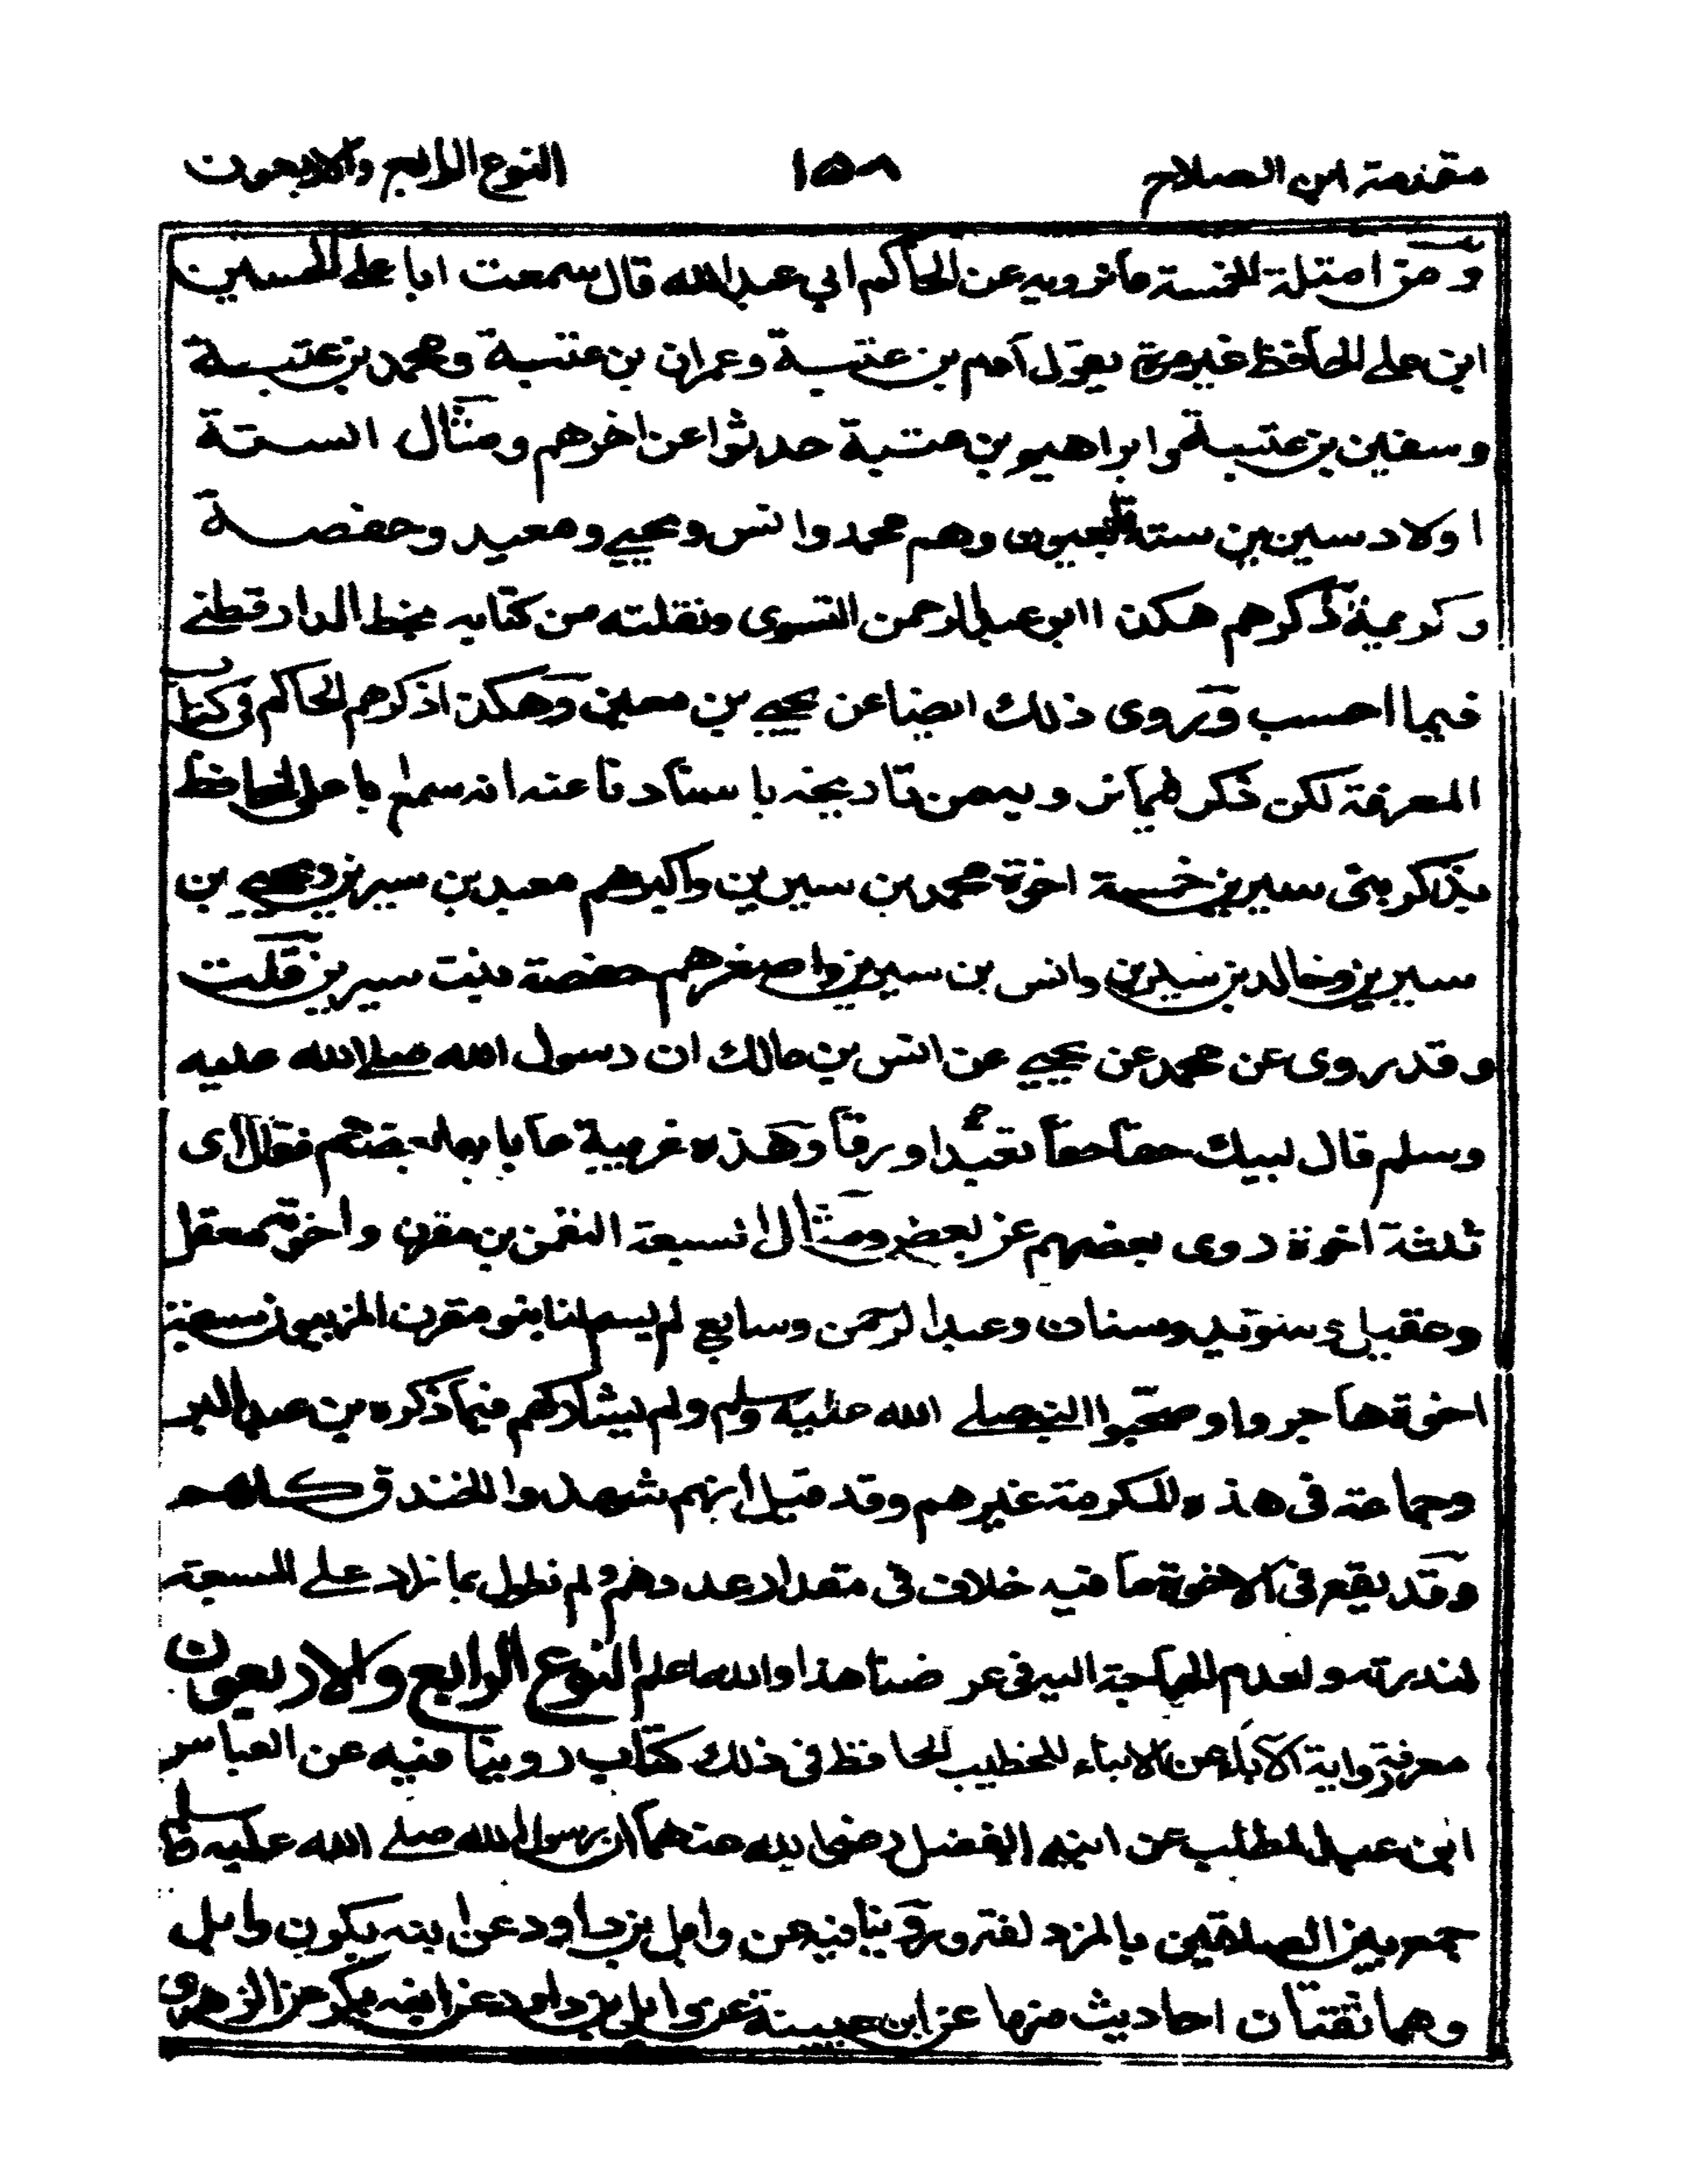 مقدمة ابن الصلاح ١٥٨ النوع الرابع والاربعون
ومن امثلة الخمسة ما نرويه عن الحاكم ابي عبد الله قال سمعت ابا علي الحسين
ابن علي الحافظ غير مرة يقول آدم بن عتبة وعمران بن عتبة ومحمد بن عتبة
وسفين بن عتبة وابراهيم بن عتبة حدثوا عن اخرهم ومثال الستة
اولاد سيرين ستة تابعيون وهم محمد وانس ويحيي ومعبد وحفصة
وكريمة ذكرهم هكذا ابو عبد الرحمن النسوى ونقلته من كتابه بخط الدارقطني
فيما احسب وروى ذلك ايضا عن يحيي بن معين وهكذا ذكرهم الحاكم في كتاب
المعرفة لكن ذكر فيما نرويه من تاريخه باسنادنا عنه انه سمع ابا علي الحافظ
يذكر بني سيرين خمسة اخوة محمد بن سيرين واكبرهم معبد بن سيرين ويحيي بن
سيرين وخالد بن سيرين وانس بن سيرين واصغرهم حفصة بنت سيرين قلت
وقد روى عن محمد عن يحيي عن انس بن مالك ان رسول الله صلى الله عليه
وسلم قال لبيك حقا حقا تعبدا ورقا وهذه غريبة عايا بها بعضهم فقال اى
ثلثة اخوة روى بعضهم عن بعض ومثال السبعة النعمن بن مقرن واخوته معقل
وعقيل وسويد وسنان وعبد الرحمن وسابع لم يسم لنا بنو مقرن المزنيون سبعة
اخوة هاجروا وصحبوا النبي صلى الله عليه وسلم ولم يشاركهم فيما ذكره بن عبد البر
وجماعة في هذه المكرمة غيرهم وقد قيل انهم شهدوا الخندق كلهم
وقد يقع في الاخوة ما فيه خلاف في مقدار عددهم ولم نطول بما زاد على السبعة
لندرته ولعدم الحاجة اليه في غرضنا هذا والله اعلم النوع الرابع والاربعون
معرفة رواية الآباء عن الابناء للخطيب الحافظ في ذلك كتاب روينا فيه عن العباس
ابن عبد المطلب عن ابنه الفضل رضي الله عنهما ان رسول الله صلى الله عليه وسلم
جمع بين الصلاتين بالمزدلفة وروينا فيه عن وايل بن داود عن ابنه بكر بن وايل
وهما ثقتان احاديث منها عن ابن عيينة عن وايل بن داود عن ابنه بكر عن الزهري